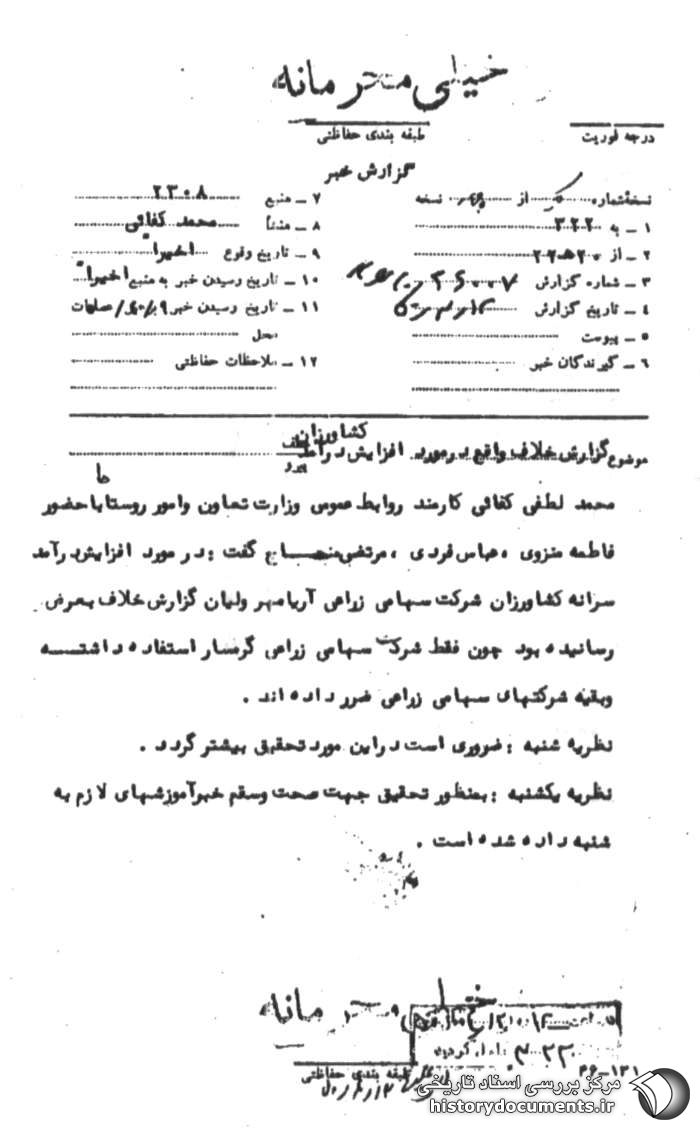 خیلی محرمانه
درجه فوریت
طبقه بندی حفاظتی
گزارش خبر
نسخهٔ شماره از نسخه
۱ – به ۳۲۲
۲ – از ۲۰ه۲۲
۳ – شماره گزارش
۴ – تاریخ گزارش
۵ – پیوست
۶ – گیرندگان خبر
۷ – منبع ۲۳۰۸
۸ – منشأ محمد کفائی
۹ – تاریخ وقوع اخیرا"
۱۰ – تاریخ رسیدن خبر به منبع اخیرا"
۱۱ – تاریخ رسیدن خبر
محل
۱۲ – ملاحظات حفاظتی
موضوع گزارش خلاف واقع در مورد افزایش درآمد کشاورزان
پیرو
محمد لطفی کفائی کارمند روابط عمومی وزارت تعاون وامور روستاها باحضور
فاطمه منزوی ، عباس فردی ، مرتضی گفت : در مورد افزایش درآمد
سرانه کشاورزان شرکت سهامی زراعی آریامهر ولیان گزارش خلاف بعرض
رسانیده بود چون فقط شرکت سهامی زراعی گرمسار استفاده داشتــه
وبقیه شرکتهای سهامی زراعی ضرر داده اند .
نظریه شنبه : ضروری است دراین مورد تحقیق بیشتر گردد .
نظریه یکشنبه : بمنظور تحقیق جهت صحت وسقم خبر آموزشهای لازم به
شنبه داده شده است .
خیلی محرمانه
طبقه بندی حفاظتی
۳۶-۱۳۱
مرکز بررسی اسناد تاریخی
historydocuments.ir